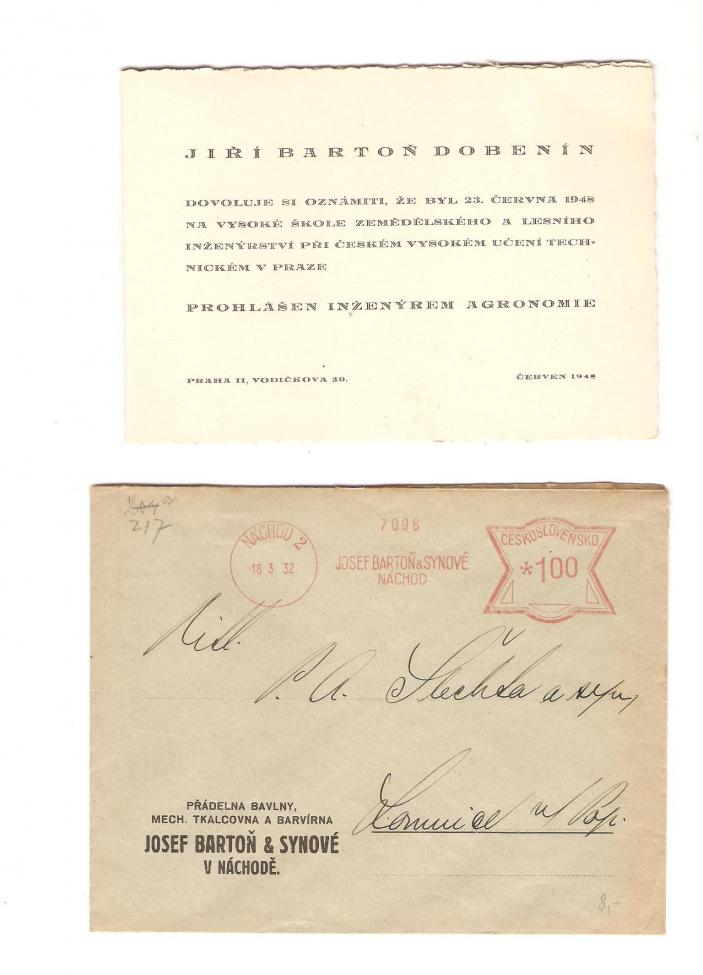 JIŘÍ BARTOŇ DOBENÍN
DOVOLUJE SI OZNÁMITI, ŽE BYL 23. ČERVNA 1948
NA VYSOKÉ ŠKOLE ZEMĚDĚLSKÉHO A LESNÍHO
INŽENÝRSTVÍ PŘI ČESKÉM VYSOKÉM UČENÍ TECH-
NICKÉM V PRAZE
PROHLÁŠEN INŽENÝREM AGRONOMIE
PRAHA II, VODIČKOVA 30.
ČERVEN 1948
217
NÁCHOD 2
18 3 32
7096
JOSEF BARTOŇ & SYNOVÉ
NÁCHOD
ČESKOSLOVENSKO
*100
P. A. Šlechta a syn,
Lomnice n/Pop.
PŘÁDELNA BAVLNY,
MECH. TKALCOVNA A BARVÍRNA
JOSEF BARTOŇ & SYNOVÉ
V NÁCHODĚ.
3,-